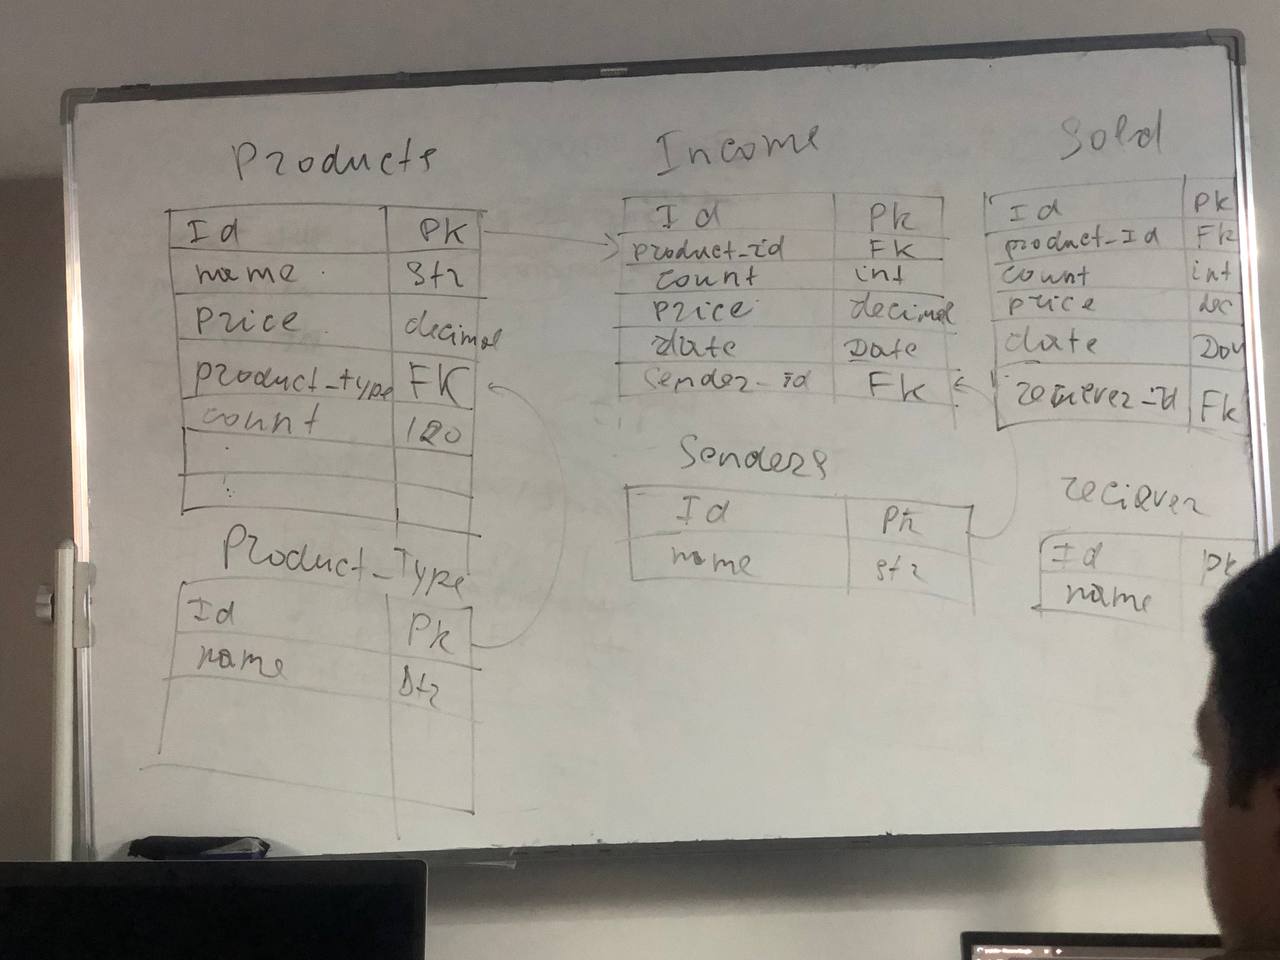 Products
Id PK
name str
price decimal
product_type FK
count 120
Product_Type
Id PK
name str
Income
Id PK
product_id FK
count int
price decimal
date Date
sender_id FK
Senders
Id PK
name str
Sold
Id PK
product_Id FK
count int
price dec
date
reciever_id FK
reciever
Id PK
name